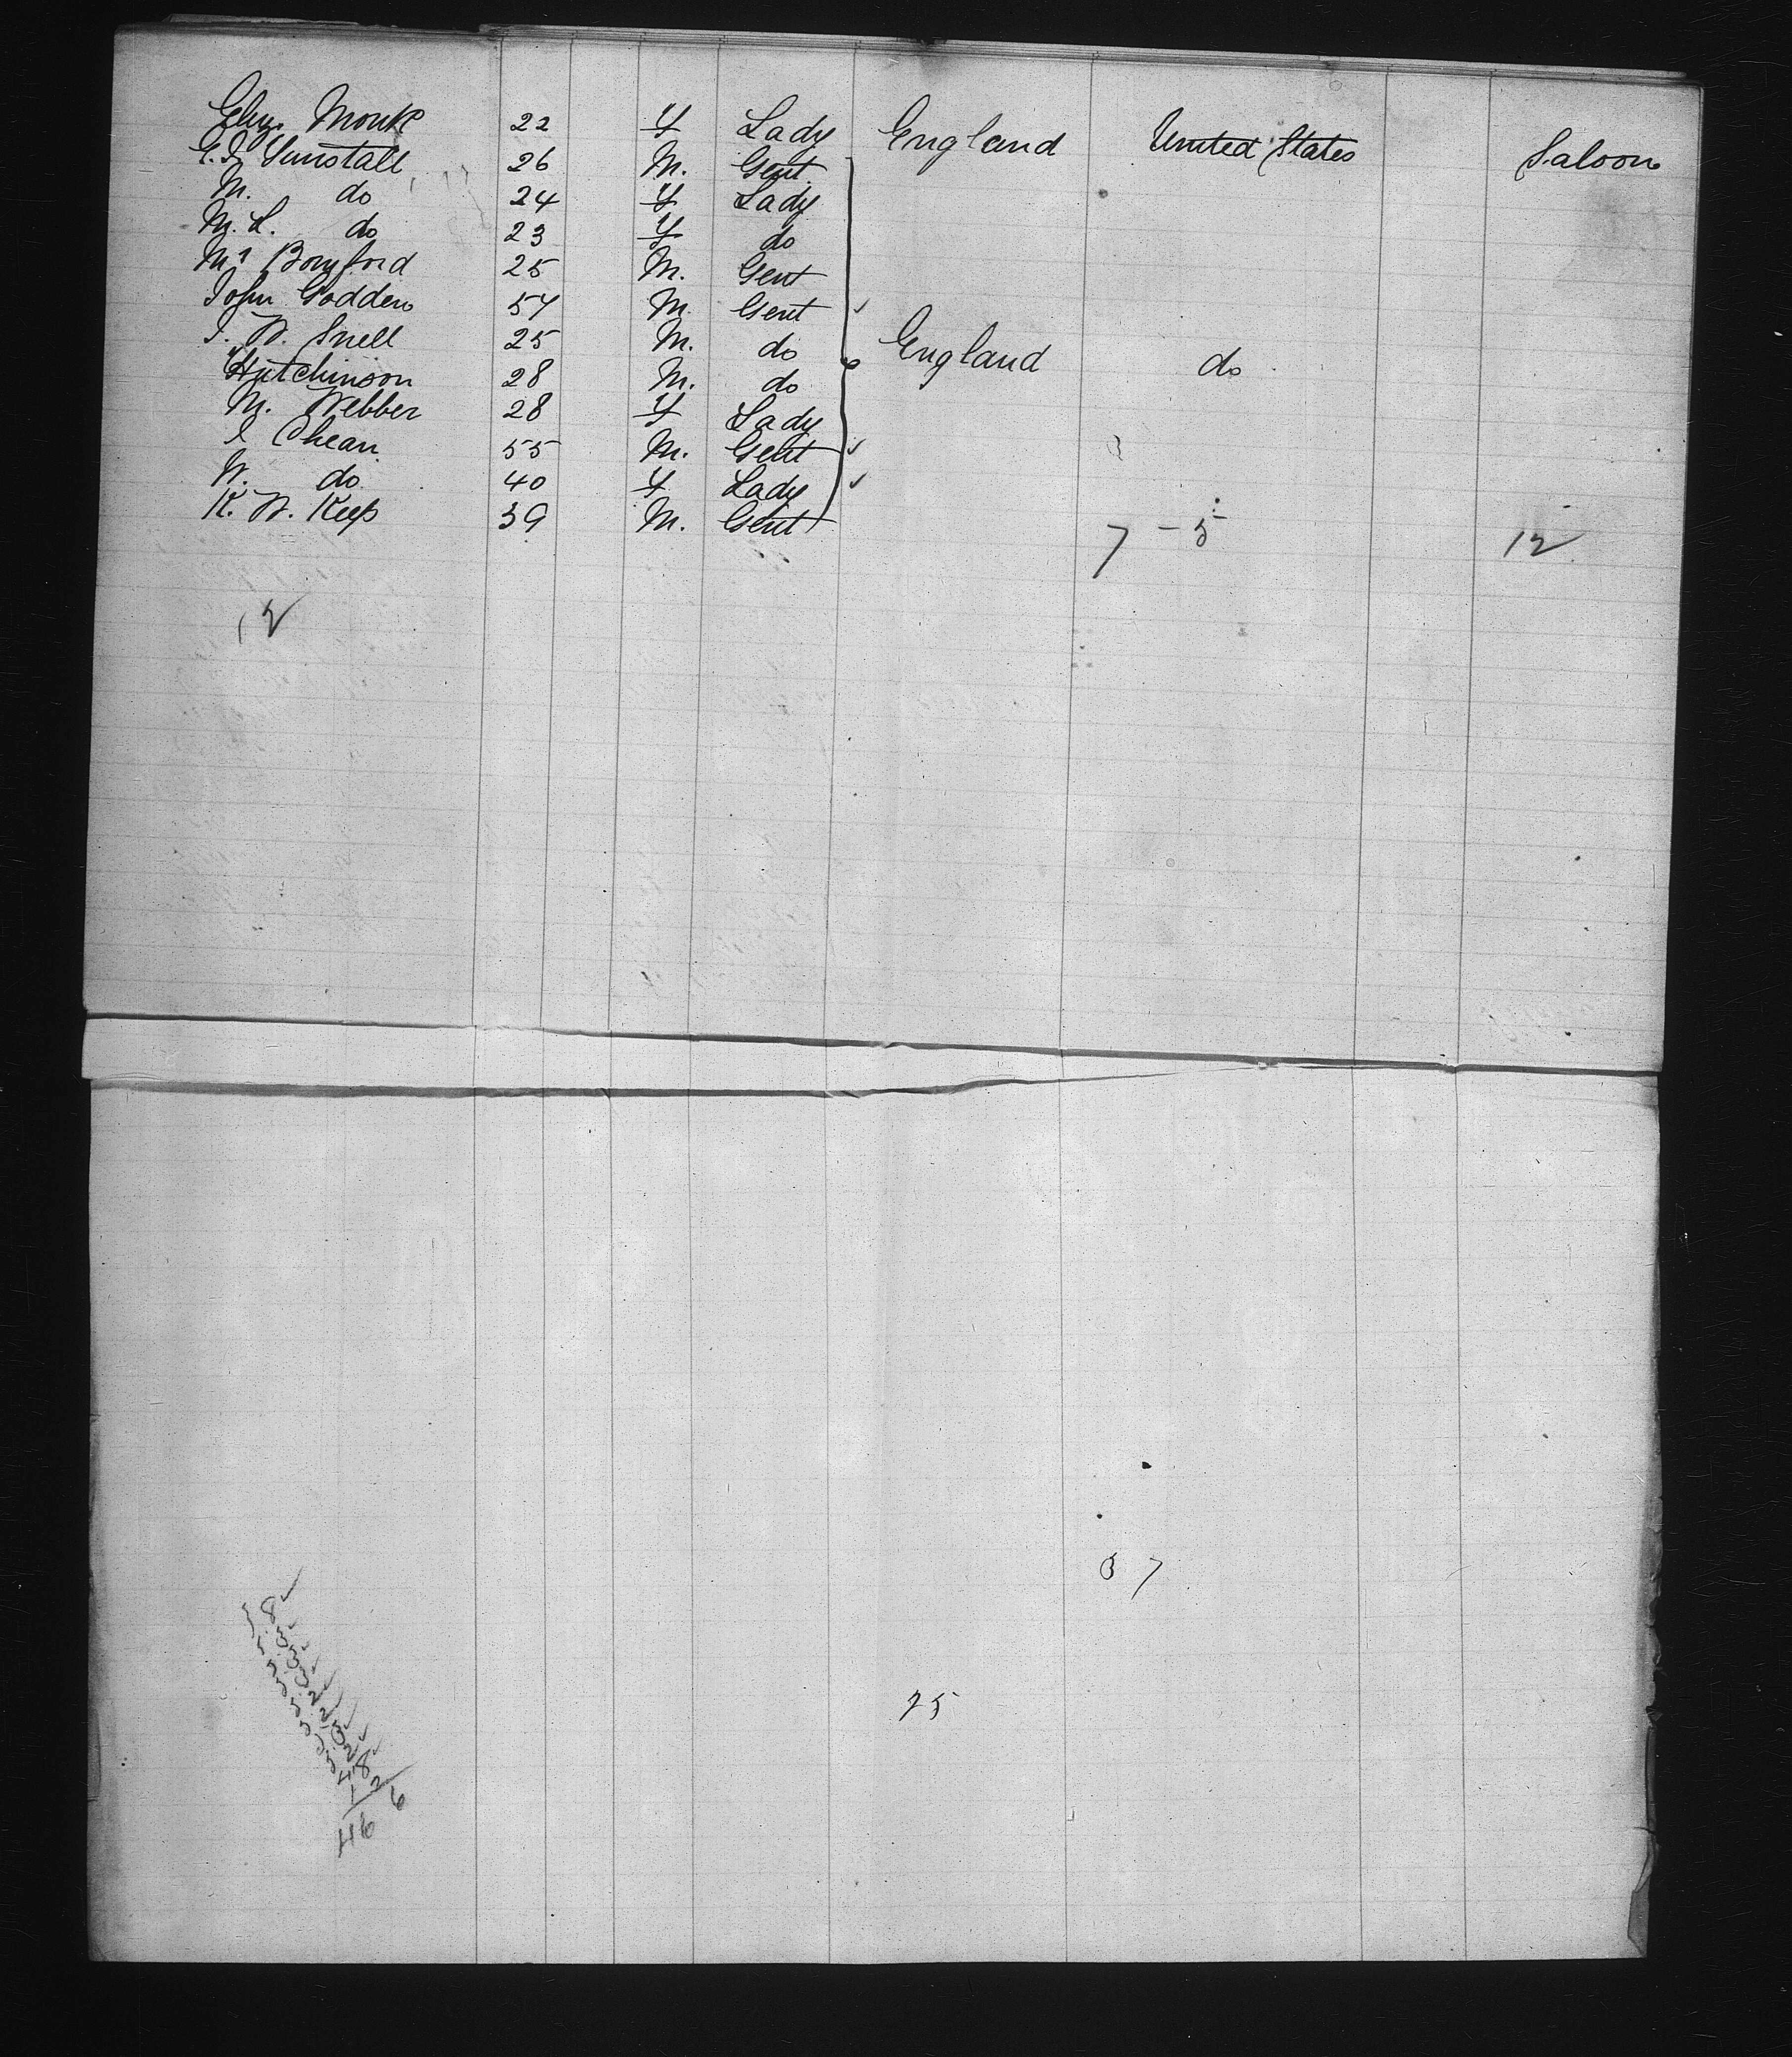 Eliz. Monk 22 F Lady England United States Saloon
G. J. Tunstall 26 M. Gent
M. do 24 F Lady
M. L. do 23 F do
Mr Bomford 25 M. Gent
John Godden 54 M. Gent
J. W. Snell 25 M. do England do
Hutchinson 28 M. do
M. Webber 28 F Lady
Chean 55 M. Gent
W. do 40 F Lady
K. W. Keep 39 M. Gent
7 - 5 12
12
37
25